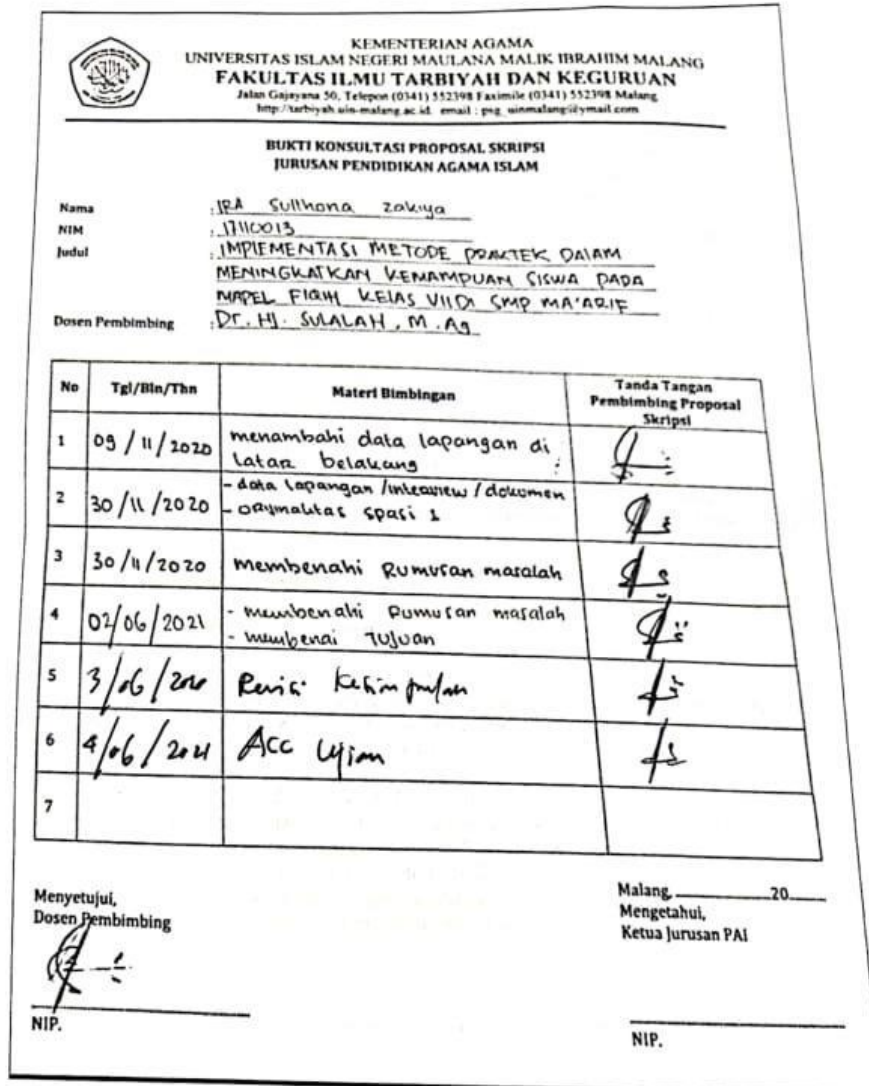 KEMENTERIAN AGAMA
UNIVERSITAS ISLAM NEGERI MAULANA MALIK IBRAHIM MALANG
FAKULTAS ILMU TARBIYAH DAN KEGURUAN
Jalan Gajayana 50, Telepon (0341) 552398 Faximile (0341) 552398 Malang
http://tarbiyah.uin-malang.ac.id. email : psg_uinmalang@ymail.com
BUKTI KONSULTASI PROPOSAL SKRIPSI
JURUSAN PENDIDIKAN AGAMA ISLAM
Nama : IRA Sullhona zakiya
NIM : 17110013
Judul : IMPLEMENTASI METODE PRAKTEK DALAM
MENINGKATKAN KEMAMPUAN SISWA PADA
MAPEL FIQIH KELAS VII DI SMP MA'ARIF
Dosen Pembimbing : Dr. Hj. SULALAH, M.Ag
No Tgl/Bln/Thn Materi Bimbingan Tanda Tangan
Pembimbing Proposal
Skripsi
1 09/11/2020 menambahi data lapangan di
latar belakang
2 30/11/2020 - data lapangan/interview/dokumen
- orymalitas spasi 1
3 30/11/2020 membenahi Rumusan masalah
4 02/06/2021 - membenahi Rumusan masalah
- membenai Tujuan
5 3/06/ Revisi Kesimpulan
6 4/06/2021 Acc Ujian
7
Menyetujui,
Dosen Pembimbing
NIP.
Malang, 20
Mengetahui,
Ketua Jurusan PAI
NIP.